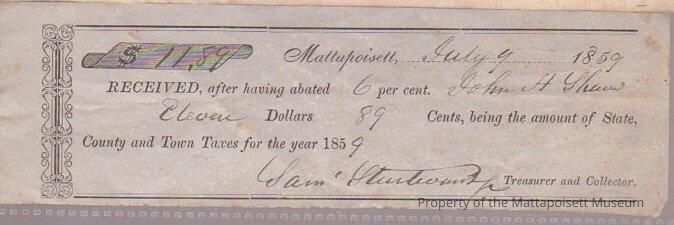 $ 11,89 Mattapoisett, July 9 1859
RECEIVED, after having abated 6 per cent. John A Shaw
Eleven Dollars 89 Cents, being the amount of State,
County and Town Taxes for the year 1859
Sam Sturtevant Jr Treasurer and Collector.
Property of the Mattapoisett Museum